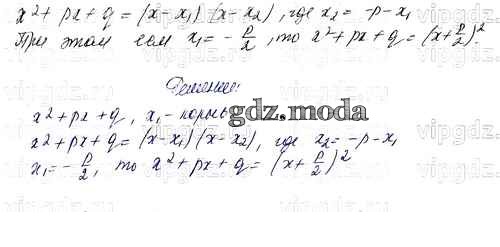 x²+ px + q = (x-x₁) (x-x₂), где x₂ = -p-x₁
При этом если x₁ = -p/2, то x²+px+q = (x+p/2)².
Решение:
x²+px+q, x₁-корень
gdz.moda
x²+px+q = (x-x₁)(x-x₂), где x₂ = -p-x₁
x₁ = -p/2, то x²+px+q = (x+p/2)²